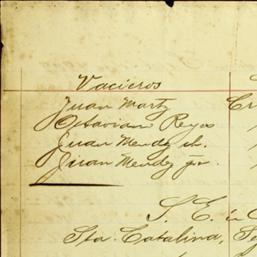 Vacieros
Juan Marty
Octaviano Reyes
Juan Mendez sr.
Juan Mendez jr.
S. E. in
Sta. Catalina,